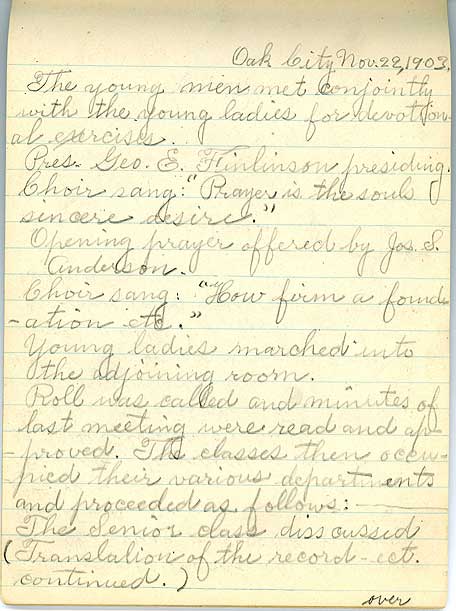 Oak City Nov. 22, 1903.
The young men met conjointly
with the young ladies for devotion-
al exercises.
Pres. Geo. E. Finlinson presiding.
Choir sang: "Prayer is the souls
sincere desire."
Opening prayer offered by Jos. S.
Anderson.
Choir sang: "How firm a found-
-ation etc."
Young ladies marched into
the adjoining room.
Roll was called and minutes of
last meeting were read and ap-
-proved. The classes then occu-
-pied their various departments
and proceeded as follows:
The Senior class disscussed
(Translation of the record-ect.
continued.)
over